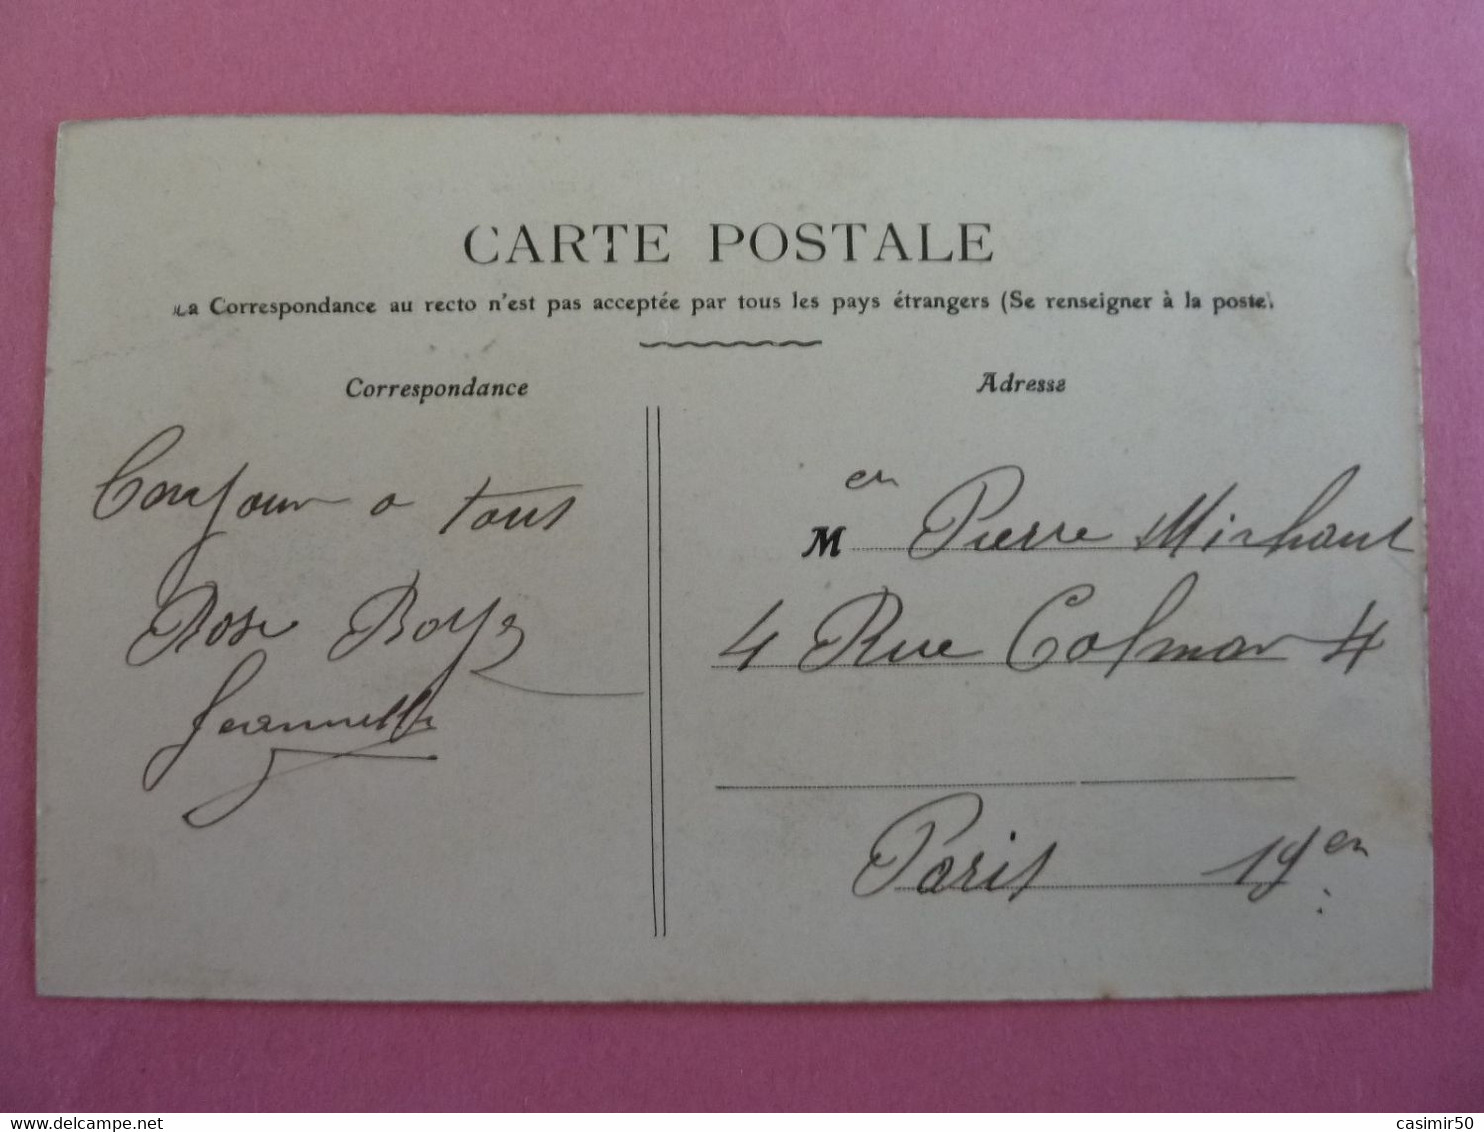 CARTE POSTALE
La Correspondance au recto n'est pas acceptée par tous les pays étrangers (Se renseigner à la poste)
Correspondance
Bonjour a tous
Rose
Jeannette
Adresse
M en Pierre
4 Rue Colmar 4
Paris 19 en
casimir50